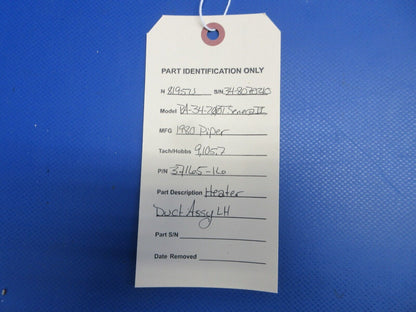 PART IDENTIFICATION ONLY
N 8195U S/N 34-8070310
Model PA-34-200T Seneca II
MFG 1980 Piper
Tach/Hobbs 9,105.7
P/N 37165-16
Part Description Heater
Duct Assy LH
Part S/N
Date Removed